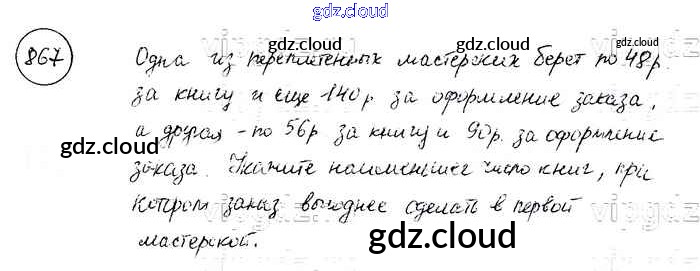 gdz.cloud
867
Одна из переплетенных мастерских берет по 48р.
за книгу и еще 140р за оформление заказа,
а другая - по 56р за книгу и 90р. за оформление
заказа. Укажите наименьшее число книг, при
котором заказ выгоднее сделать в первой
мастерской.
gdz.cloud
gdz.cloud
gdz.cloud
gdz.cloud
gdz.cloud
gdz.cloud